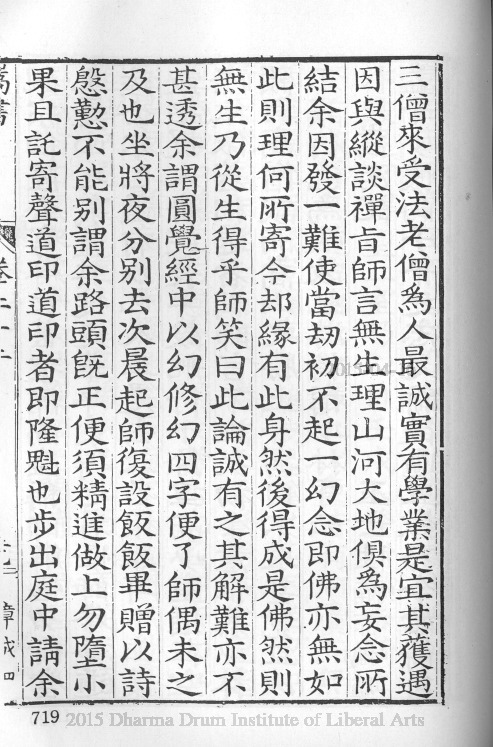 三僧來受法老僧爲人最誠實有學業是宜其獲遇
因與縱談禪旨師言無生理山河大地俱爲妄念所
結余因發一難使當劫初不起一幻念即佛亦無如
此則理何所寄今却緣有此身然後得成是佛然則
無生乃從生得乎師笑曰此論誠有之其解難亦不
甚透余謂圓覺經中以幻修幻四字便了師偶未之
及也坐將夜分别去次晨起師復設飯飯畢贈以詩
慇懃不能别謂余路頭旣正便須精進做上勿墮小
果且託寄聲道印道印者即隆魁也步出庭中請余
卷二十二
719 2015 Dharma Drum Institute of Liberal Arts